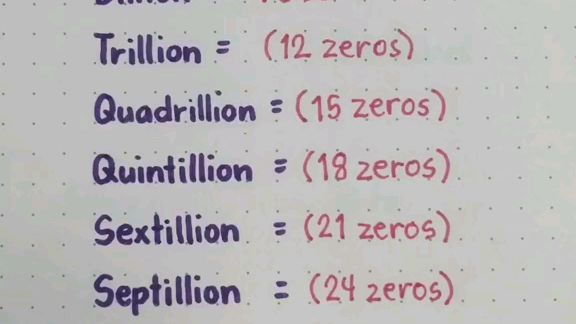 Trillion = (12 zeros)
Quadrillion = (15 zeros)
Quintillion = (18 zeros)
Sextillion = (21 zeros)
Septillion = (24 zeros)